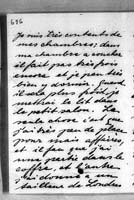 696
Je suis très contente de
mes chambres; dans
ma chambre a coucher
il fait pas très froid
encore et je peu très
bien y dormir. Quand
il sera plus froid je
mettrai le lit dans
le petit salon. La
seule chose c'est que
j'ai très peu de place
pour mes affaires
et il faut que j'ai
une partie dans le
coffre, et l'autre
tailleur de Londres